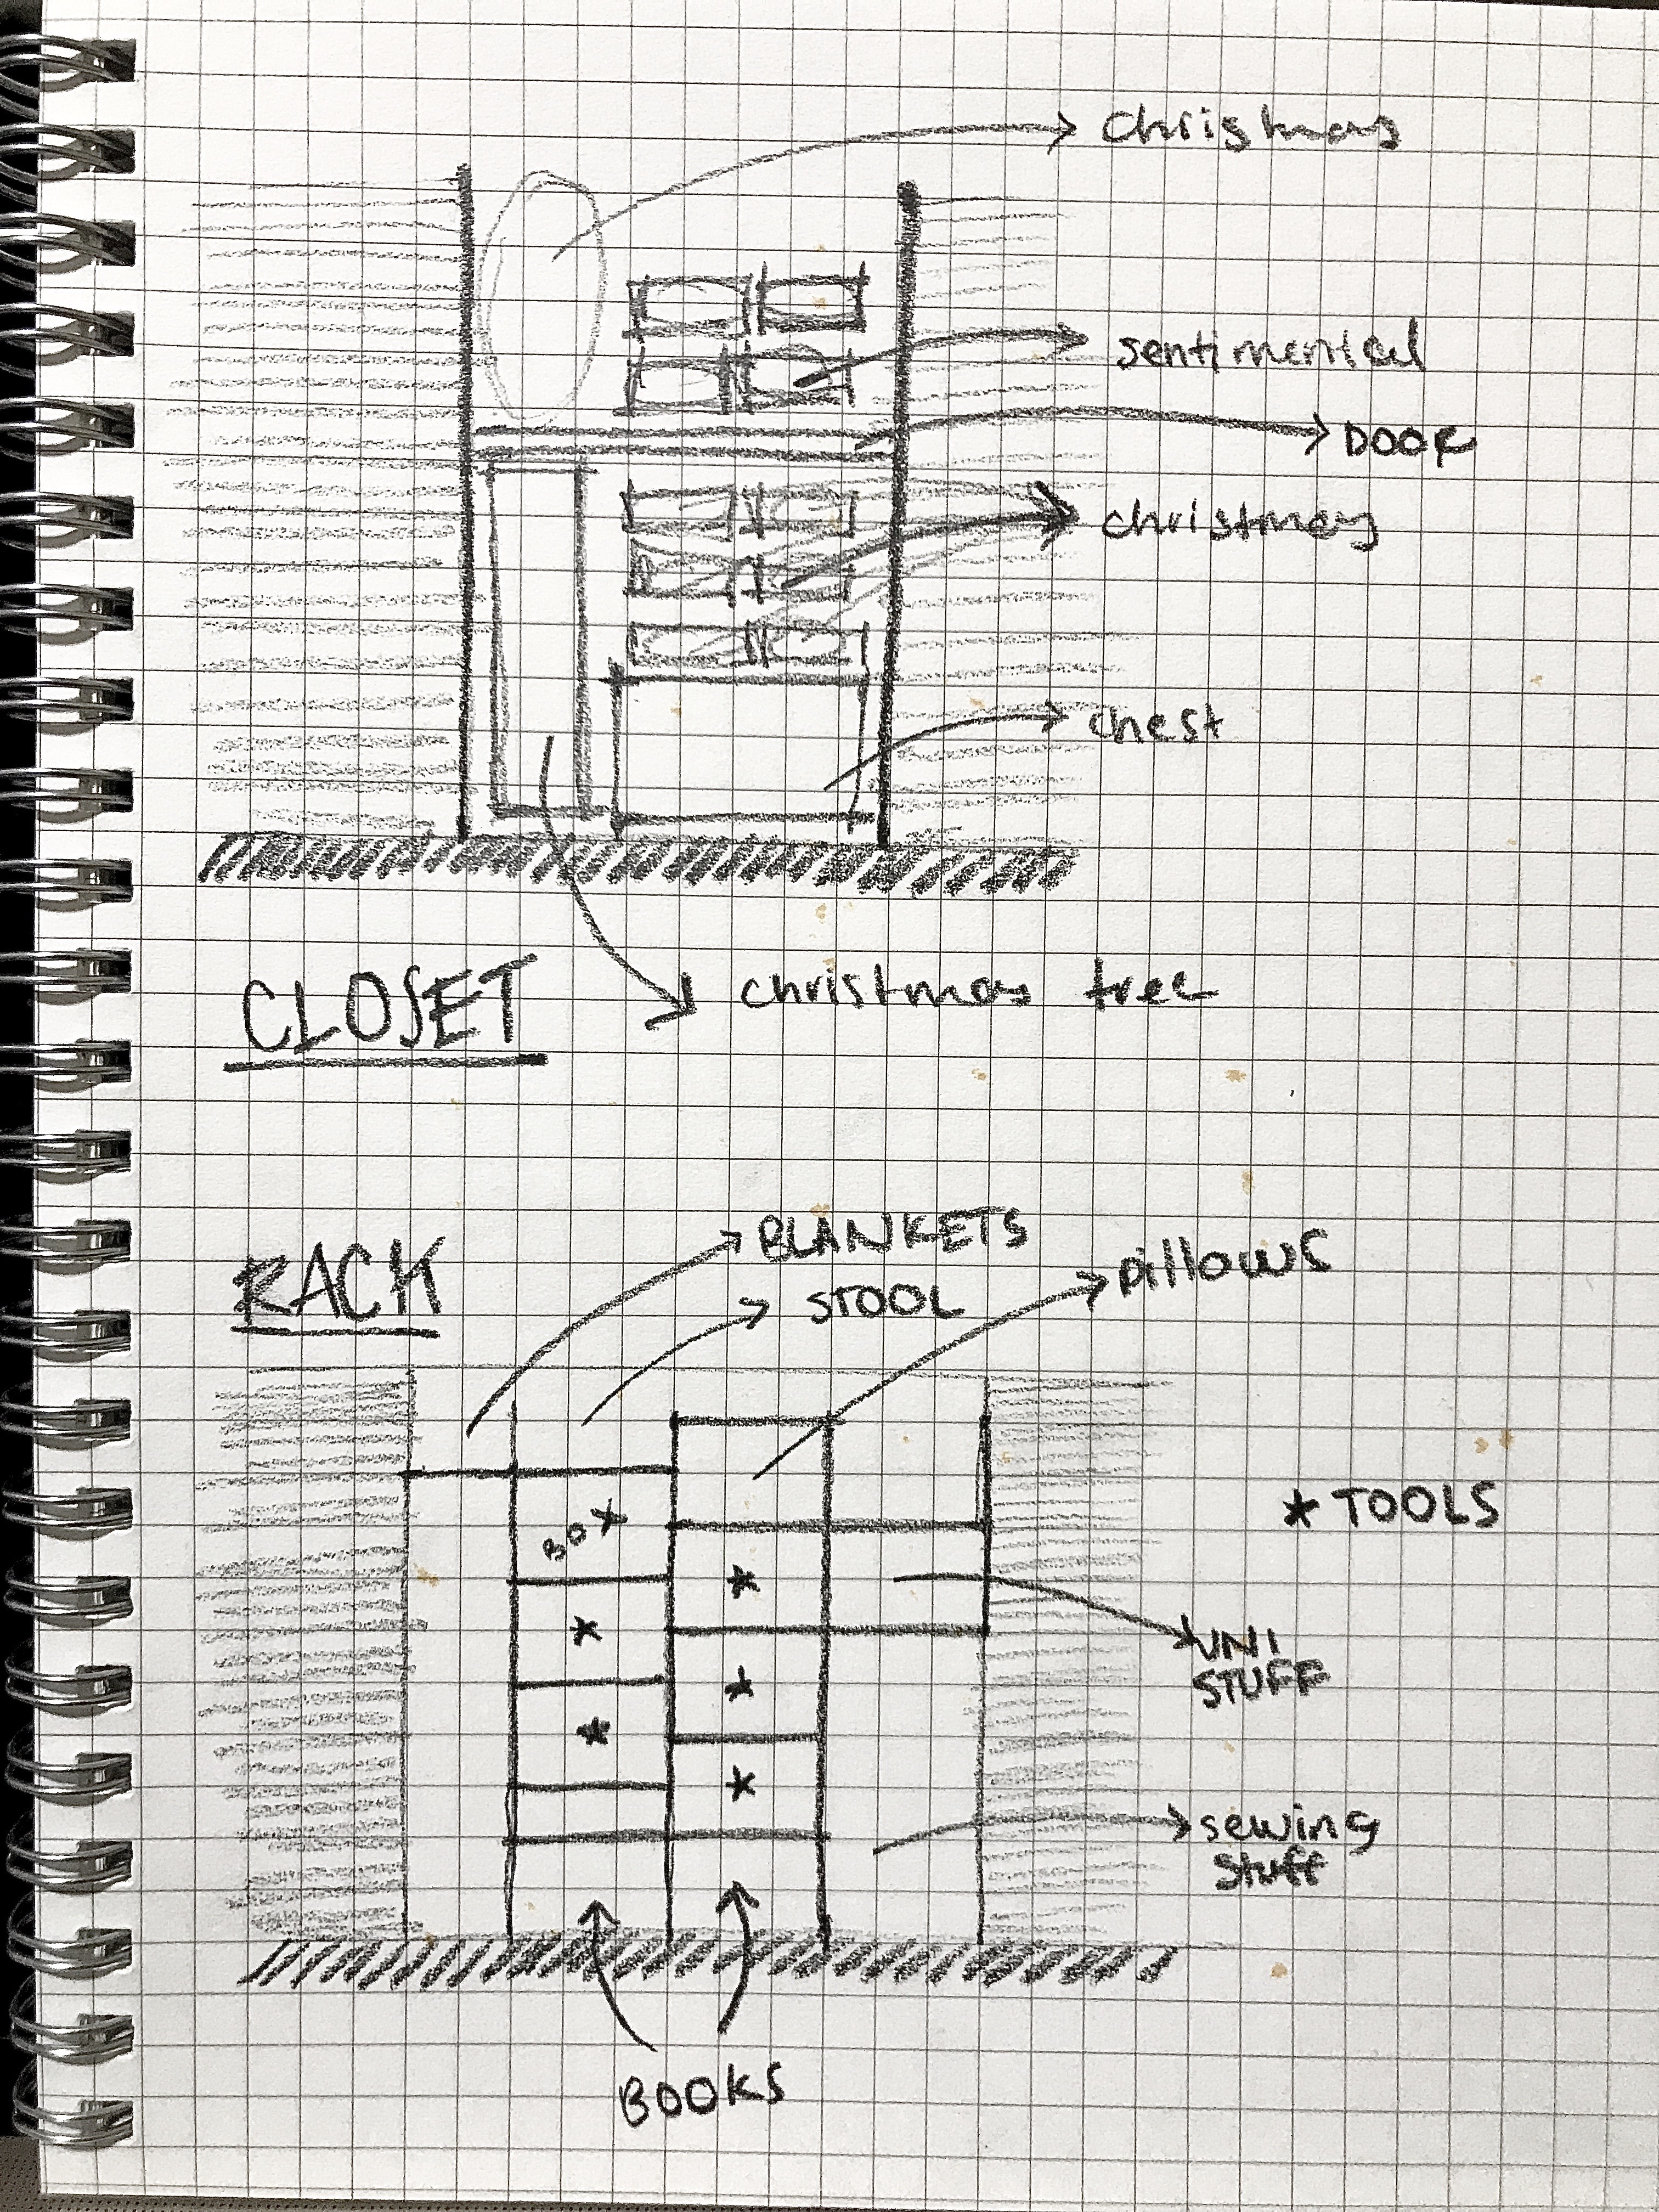 christmas
sentimental
DOOR
christmas
chest
christmas tree
CLOSET
RACK
BLANKETS
STOOL
pillows
BOX
* TOOLS
*
*
UNI
STUFF
*
*
*
sewing
stuff
BOOKS